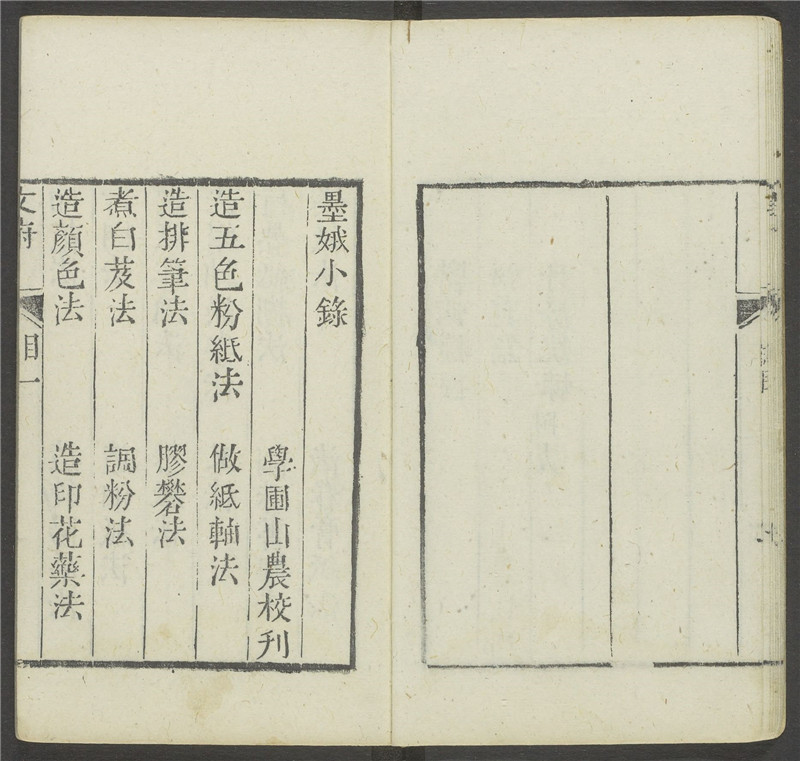 墨娥小錄
學圃山農校刊
造五色粉紙法　做紙軸法
造排筆法　膠礬法
煮白芨法　調粉法
造顏色法　造印花藥法
目一